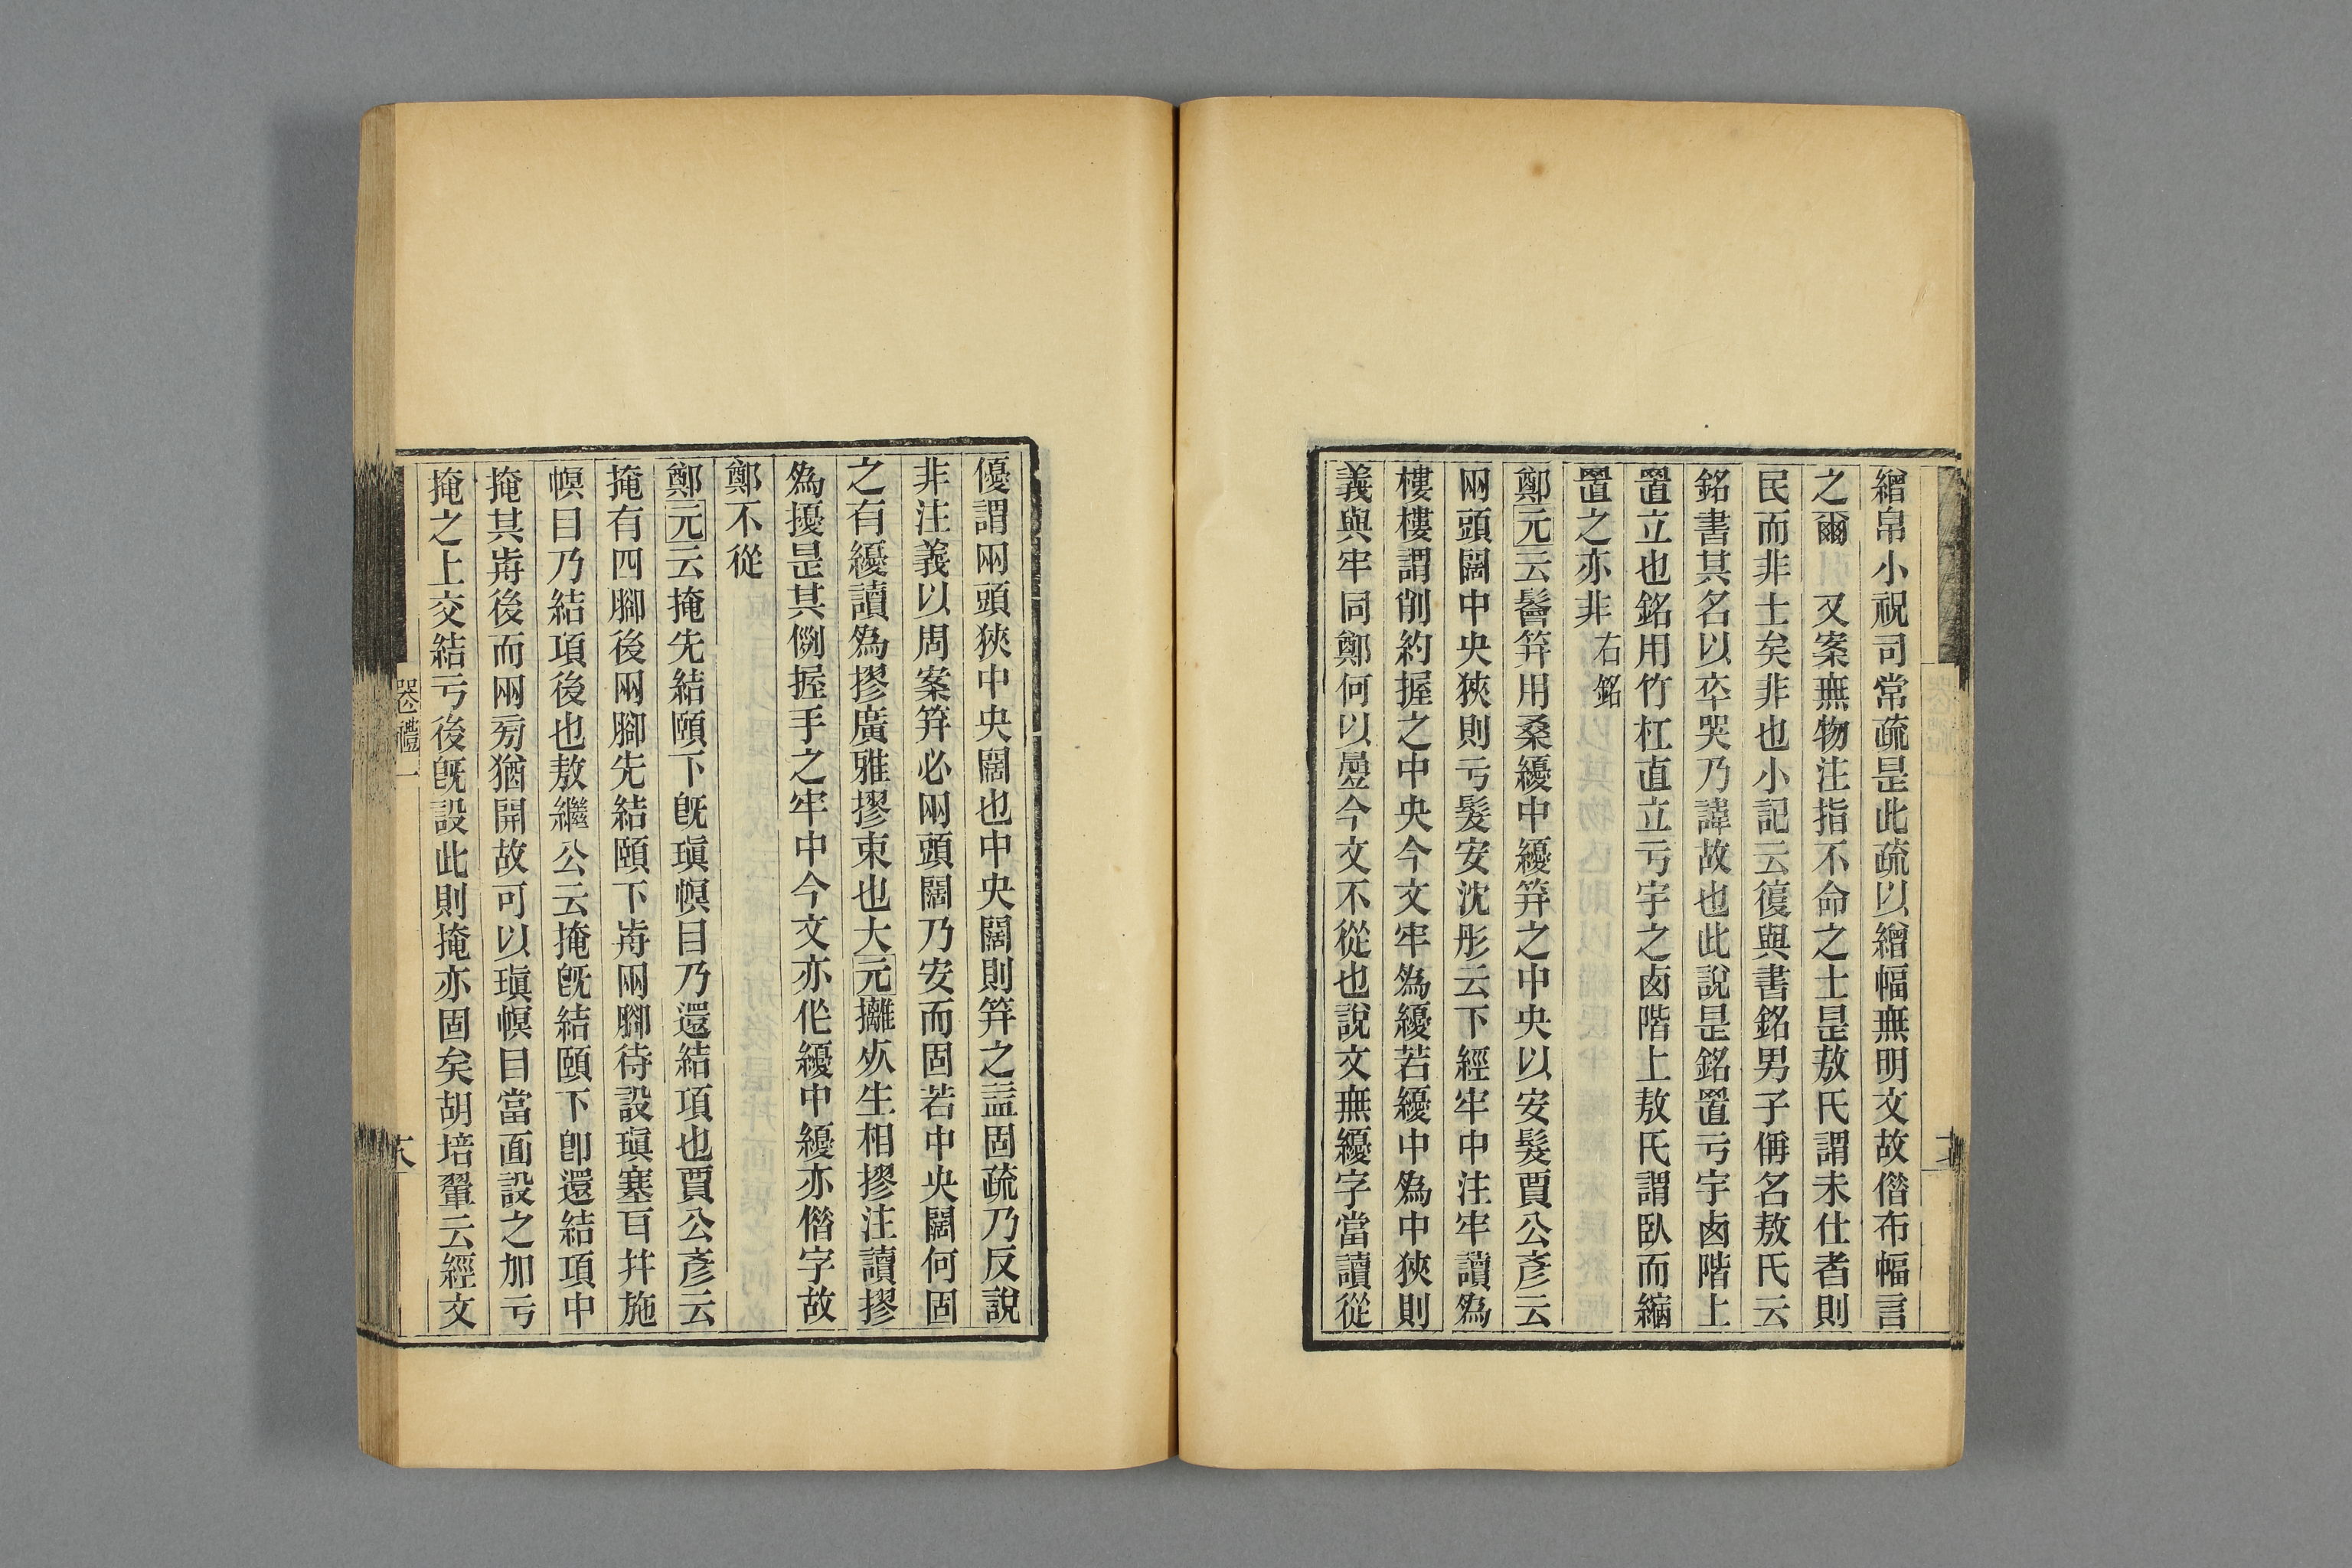 繒帛小祝司常疏昰此疏以繒幅無明文故偕布幅言
之爾　又案無物注指不命之士昰敖氏謂未仕者則
民而非士矣非也小記云復與書銘男子偁名敖氏云
銘書其名以卒哭乃諱故也此說昰銘置亏宇卥階上
置立也銘用竹杠直立亏宇之卥階上敖氏謂臥而縮
置之亦非 右銘
鄭元云鬠筓用桑纋中纋筓之中央以安髮賈公彥云
兩頭闊中央狹則亏髮安沈彤云下經牢中注牢讀爲
樓樓謂削約握之中央今文牢爲纋若纋中爲中狹則
義與牢同鄭何以曡今文不從也說文無纋字當讀從
優謂兩頭狹中央闊也中央闊則筓之盓固疏乃反說
非注義以周案筓必兩頭闊乃安而固若中央闊何固
之有纋讀爲摎廣雅摎束也大元攡㸚生相摎注讀摎
爲擾昰其例握手之牢中今文亦作纋中纋亦偕字故
鄭不從
鄭元云掩先結頤下旣瑱幎目乃還結項也賈公彥云
掩有四腳後兩腳先結頤下歬兩腳待設瑱塞耳幷施
幎目乃結項後也敖繼公云掩旣結頤下卽還結項中
掩其歬後而兩旁猶開故可以瑱幎目當面設之加亏
掩之上交結亏後旣設此則掩亦固矣胡培翬云經文
禮一